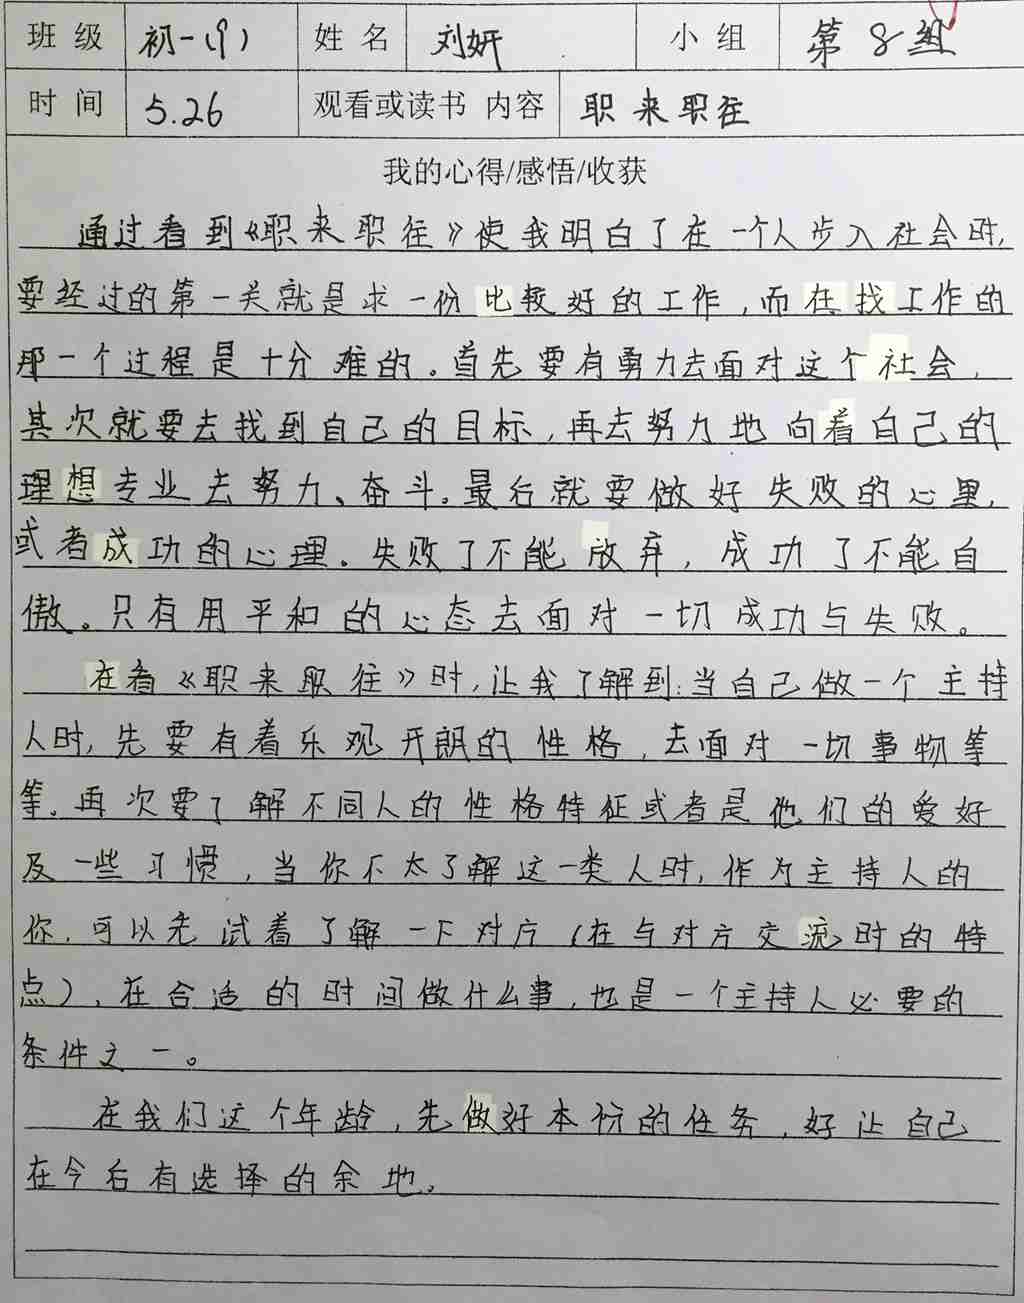 班 级 初一(9) 姓 名 刘妍 小 组 第8组
时 间 5.26 观看或读书 内容 职来职往
我的心得/感悟/收获
通过看到《职来职往》使我明白了在一个人步入社会时,
要经过的第一关就是求一份比较好的工作,而在找工作的
那一个过程是十分难的。首先要有勇力去面对这个社会,
其次就要去找到自己的目标,再去努力地向着自己的
理想专业去努力、奋斗。最后就要做好失败的心里,
或者成功的心理。失败了不能放弃,成功了不能自
傲。只有用平和的心态去面对一切成功与失败。
在看《职来职往》时,让我了解到:当自己做一个主持
人时,先要有着乐观开朗的性格,去面对一切事物等
等。再次要了解不同人的性格特征或者是他们的爱好
及一些习惯,当你不太了解这一类人时,作为主持人的
你,可以先试着了解一下对方(在与对方交流时的特
点),在合适的时间做什么事,也是一个主持人必要的
条件之一。
在我们这个年龄,先做好本份的任务,好让自己
在今后有选择的余地。